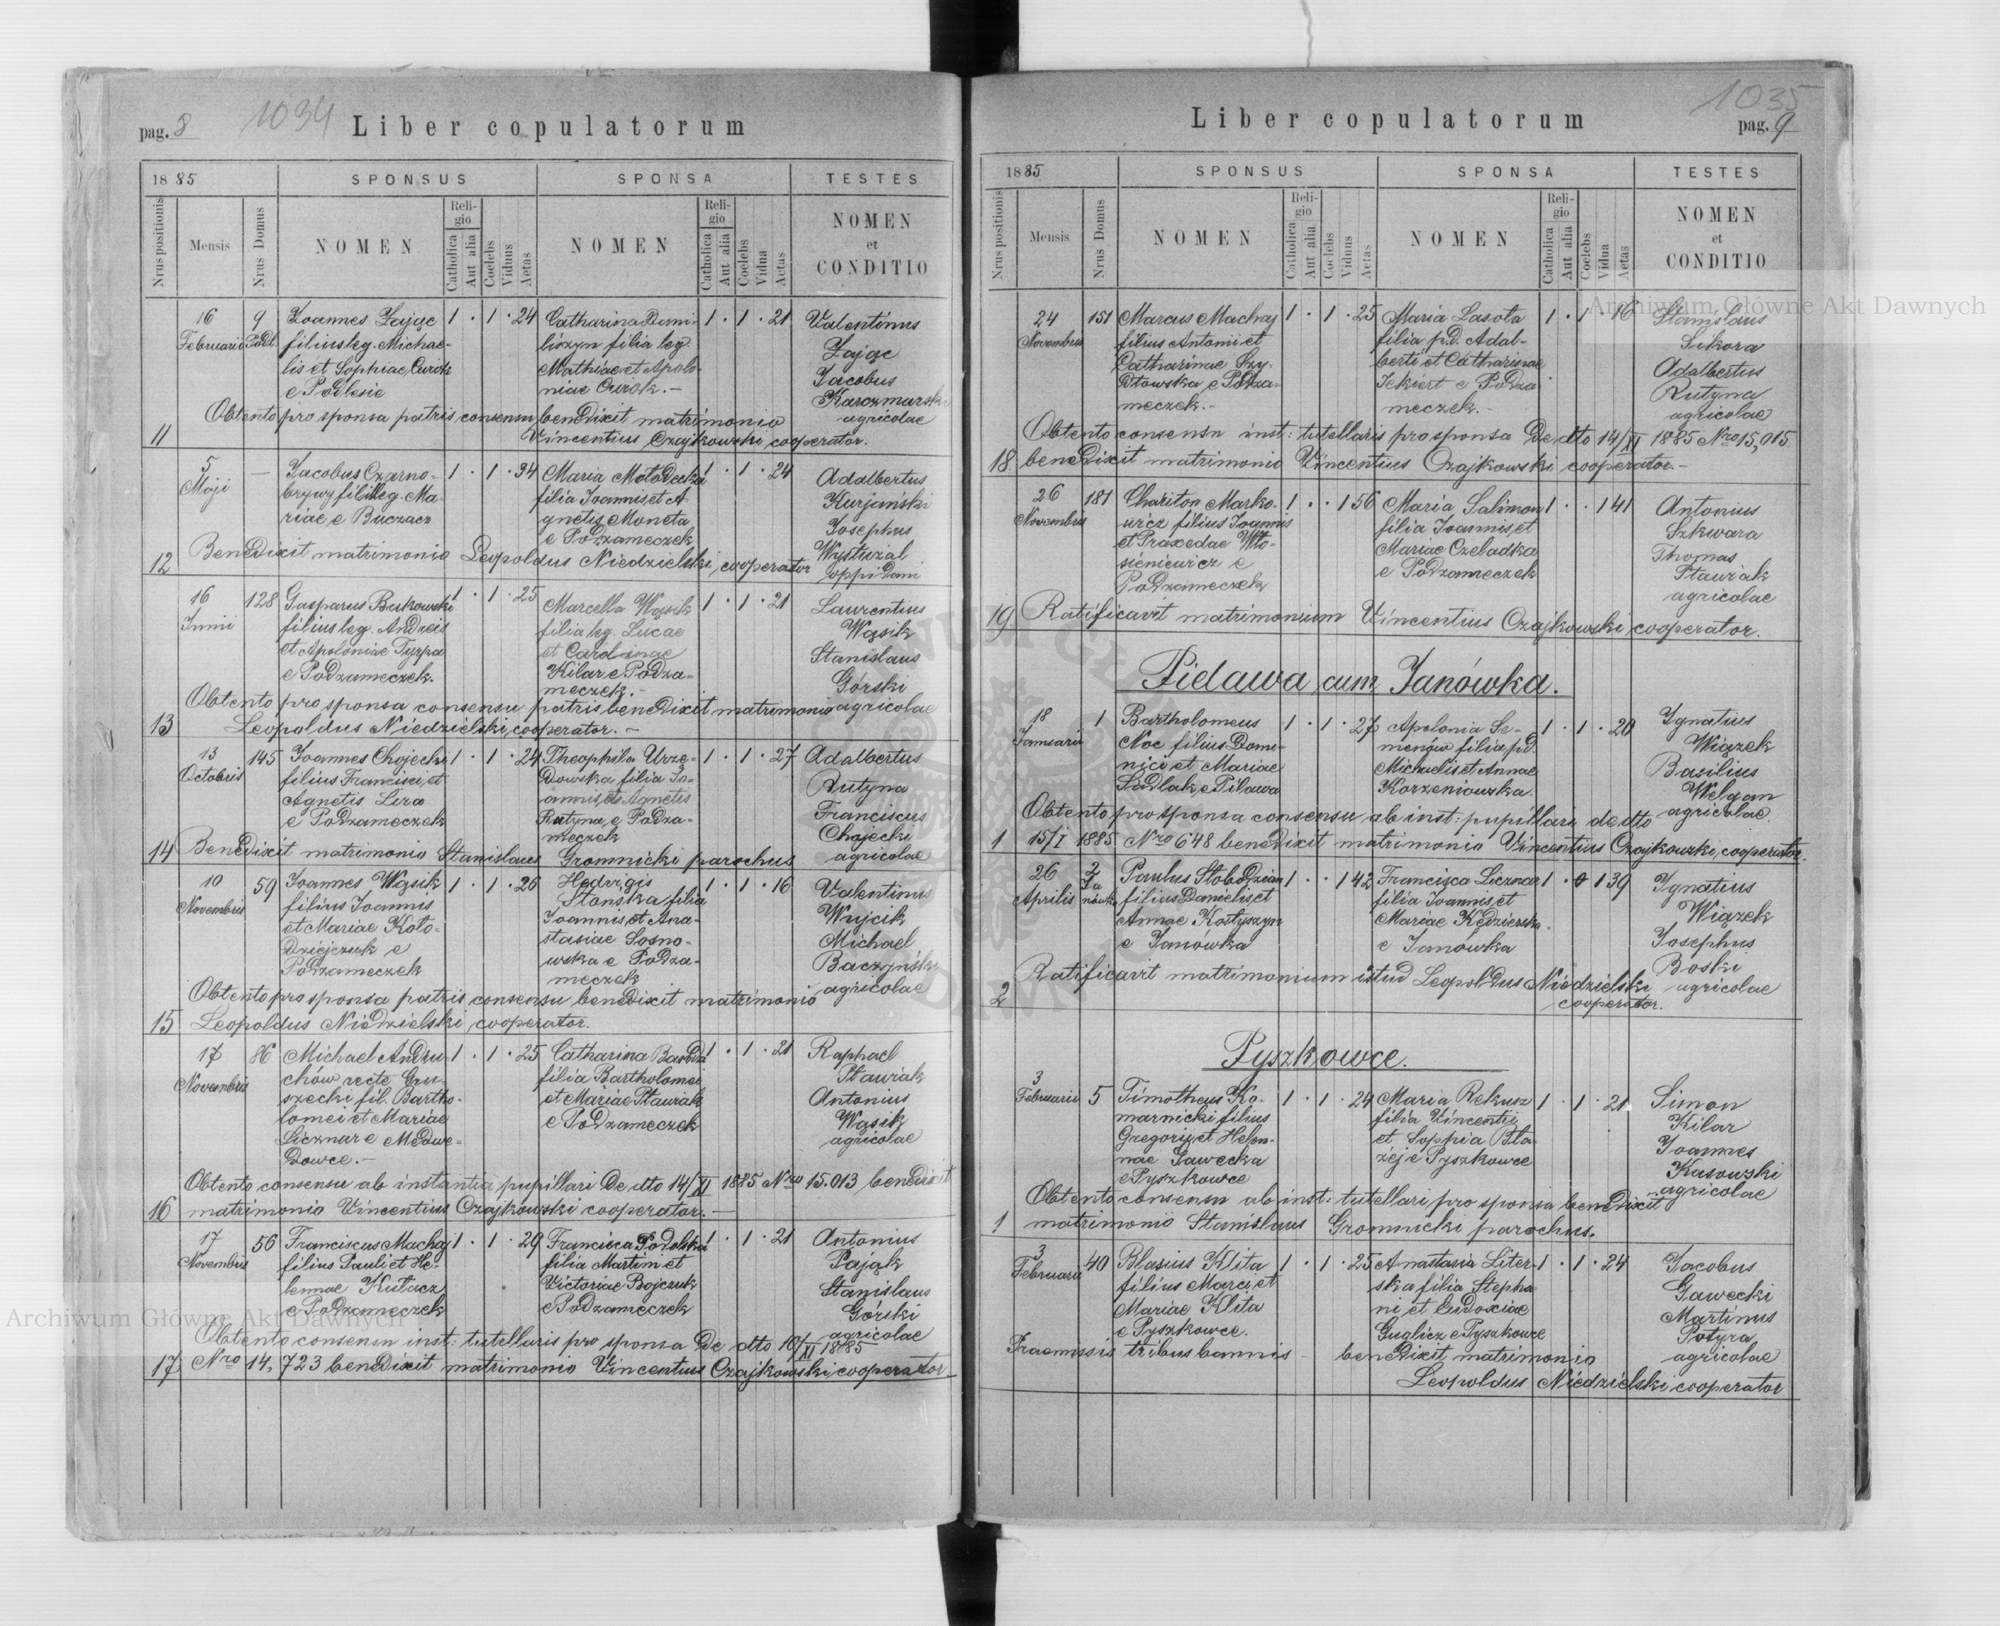 pag. 8
1034
Liber copulatorum
1885
SPONSUS
SPONSA
TESTES
Nrus positionis
Mensis
Nrus Domus
NOMEN
Religio
Catholica
Aut alia
Coelebs
Viduus
Aetas
NOMEN
Religio
Catholica
Aut alia
Coelebs
Vidua
Aetas
NOMEN
et
CONDITIO
16 9 Joannes Zając 1 · 1 · 24 Catharina Demi- 1 · 1 · 21 Valentinus
Februarii Podl. filius leg. Michae- liszyn filia leg. Zając
lis et Sophiae Curok Mathiae et Apolo- Jacobus
e Podlesie niae Curok. – Karczmarski
Obtento pro sponsa patris consensu benedixit matrimonio agricolae
11 Vincentius Czajkowski cooperator.
5 — Jacobus Czarno- 1 · 1 · 34 Maria Mołodecka 1 · 1 · 24 Adalbertus
Maji brywy fil. leg. Ma- filia Joannis et A- Kurjański
riae e Buczacz gnetis Moneta Josephus
e Podzameczek
Benedixit matrimonio Leopoldus Niedzielski, cooperator
12 oppidani
16 128 Gasparus Bukowski 1 · 1 · 25 Marcella Wąsik 1 · 1 · 21 Laurentius
Junii filius leg. Andreis filia leg. Lucae Wąsik
et Apoloniae Pyrpa et Carolinae Stanislaus
e Podzameczek. Kilar e Podza- Górski
meczek. –
Obtento pro sponsa consensu patris benedixit matrimonio agricolae
13 Leopoldus Niedzielski, cooperator. –
13 145 Joannes Chojecki 1 · 1 · 24 Theophila Urzę- 1 · 1 · 27 Adalbertus
Octobris filius Francisci, et dowska filia Jo- Rutyna
Agnetis Lira annis, et Agnetis Franciscus
e Podzameczek Rutyna, e Podza- Chojecki
meczek
14 Benedixit matrimonio Stanislaus Gromnicki parochus agricolae
10 59 Joannes Wąsik 1 · 1 · 26 Hedvigis 1 · 1 · 16 Valentinus
Novembris filius Joannis Słonska filia Wujcik
et Mariae Koło- Joannis et Ana- Michael
dziejczuk e stasiae Sosno- Baczyński
Podzameczek wska e Podza-
meczek
Obtento pro sponsa patris consensu benedixit matrimonio agricolae
15 Leopoldus Niedzielski, cooperator.
17 86 Michael Andru- 1 · 1 · 25 Catharina Banda 1 · 1 · 21 Raphael
Novembris chów recte Gru- filia Bartholomei Ptawiak
szecki fil. Bartho- et Mariae Ptawiak Antonius
lomei et Mariae e Podzameczek Wąsik
Licznar e Medwe- agricolae
dowce. –
Obtento consensu ab instantia pupillari de dto 14/XI 1885 Nro 15.013 benedixit
16 matrimonio Vincentius Czajkowski cooperator. –
17 56 Franciscus Machaj 1 · 1 · 29 Francisca Podolska 1 · 1 · 21 Antonius
Novembris filius Pauli et He- filia Martini et Pająk
lennae Kułacz Victoriae Bojczuk Stanislaus
e Podzameczek e Podzameczek Górski
agricolae
Obtento consensu inst: tutellaris pro sponsa de dto 10/XI 1885
17 Nro 14,723 benedixit matrimonio Vincentius Czajkowski, cooperator
1035
Liber copulatorum
pag. 9
1885
SPONSUS
SPONSA
TESTES
Nrus positionis
Mensis
Nrus Domus
NOMEN
Religio
Catholica
Aut alia
Coelebs
Viduus
Aetas
NOMEN
Religio
Catholica
Aut alia
Coelebs
Vidua
Aetas
NOMEN
et
CONDITIO
24 151 Marcus Machaj 1 · 1 · 25 Maria Lasota 1 · 1 · 16 Stanislaus
Novembris filius Antoni et filia p.d. Adal- Sikora
Catharinae Szy- berti et Catharinae Adalbertus
dłowska e Podza- Jekiert e Podza- Rutyna
meczek. – meczek. – agricolae
Obtento consensu inst: tutellaris pro sponsa de dto 14/XI 1885 Nro 15,015
18 benedixit matrimonio Vincentius Czajkowski cooperator. –
26 181 Chariton Marko- 1 · · 1 56 Maria Salimon 1 · · 1 41 Antonius
Novembris wicz filius Joannis filia Joannis et Szkwara
et Praxedae Wło- Mariae Czeladka Thomas
sieniewicz e e Podzameczek Ptawiak
Podzameczek agricolae
19 Ratificavit matrimonium Vincentius Czajkowski, cooperator.
Pidawa cum Janówka.
18 1 Bartholomeus 1 · 1 · 27 Apolonia Se- 1 · 1 · 20 Ignatius
Januarii Noc filius Domi- menów filia p.d. Wiązek
nici et Mariae Michaelis et Annae Basilius
Sudlak e Pilawa Korzeniowska. Welgan
Obtento pro sponsa consensu ab inst: pupillari de dto agricolae.
1 15/I 1885 Nro 648 benedixit matrimonio Vincentius Czajkowski, cooperator.
26 2 Paulus Słobodzian 1 · · 1 42 Francisca Licznar 1 · 0 1 39 Ignatius
Aprilis Janówk. filius Danielis et filia Joannis et Wiązek
Annae Kostyszyn Mariae Kędzierska Josephus
e Janówka e Janówka Boski
Ratificavit matrimonium istud Leopoldus Niedzielski agricolae
2 cooperator.
Pyszkowce.
3 5 Timotheus Ko- 1 · 1 · 24 Maria Rekusz 1 · 1 · 21 Simon
Februarii marnicki filius filia Vincentii Kilar
Gregorii et Helen- et Soppia Bła- Joannes
nae Gawecka zej e Pyszkowce Kasowski
e Pyszkowce
Obtento consensu ab inst: tutellari pro sponsa benedixit agricolae
1 matrimonio Stanislaus Gromnicki parochus.
3 40 Blasius Klita 1 · 1 · 25 Anastasia Liter- 1 · 1 · 24 Jacobus
Februarii filius Marci, et ska filia Stepha- Gawecki
Mariae Klita ni et Eudoxiae Martinus
e Pyszkowce. Guglicz e Pyszkowce Potyra
Praemissis tribus bannis – benedixit matrimonio agricolae
Leopoldus Niedzielski cooperator
Archiwum Główne Akt Dawnych
Archiwum Główne Akt Dawnych